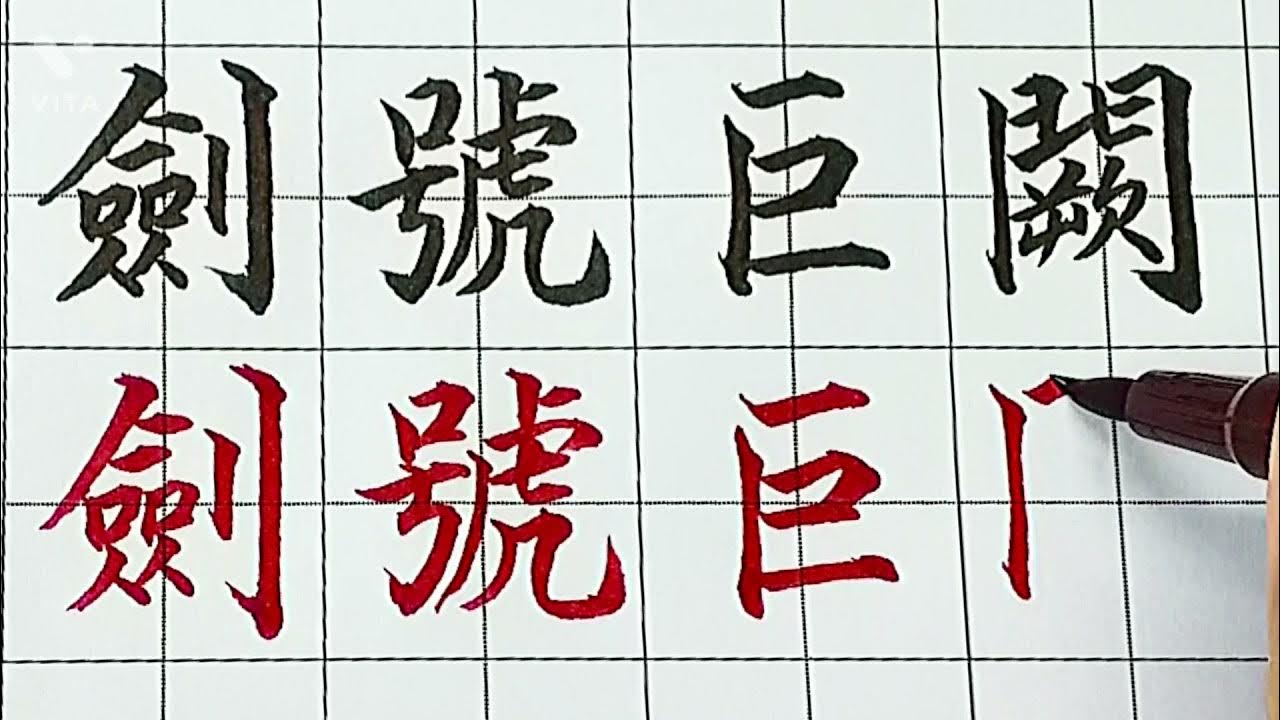 VITA
劍號巨闕
劍號巨